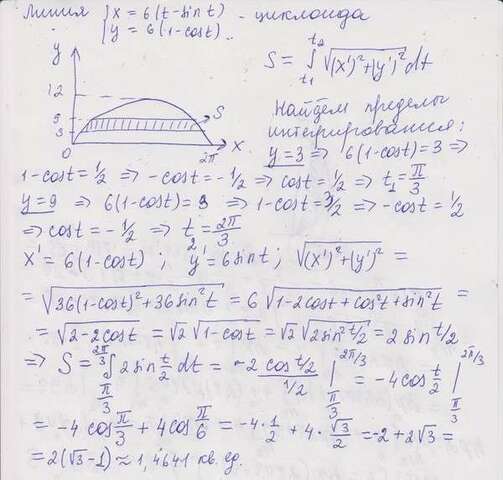 Линия { x = 6(t-sint) - циклоида
y = 6(1-cost)
y
12
5
3
0
S
x
2π
S = ∫ t₁ t₂ √(x')²+(y')² dt
Найдём пределы
интегрирования:
y=3 => 6(1-cost)=3 =>
1-cost=1/2 => -cost=-1/2 => cost=1/2 => t₁=π/3
y=9 => 6(1-cost)=9 => 1-cost=3/2 => -cost=1/2
=> cost=-1/2 => t₂=2π/3
x'=6(1-cost) ; y'=6sint ; √(x')²+(y')² =
= √36(1-cost)²+36sin²t = 6√1-2cost+cos²t+sin²t =
= √2-2cost = √2 √1-cost = √2 √2sin²t/2 = 2 sin t/2
=> S = ∫ π/3 2π/3 2sin t/2 dt = -2 cos t/2 / 1/2 | π/3 2π/3 = -4cos t/2 | π/3 2π/3
= -4 cos π/3 + 4cos π/6 = -4·1/2 + 4·√3/2 = -2+2√3 =
= 2(√3-1) ≈ 1,4641 кв. ед.